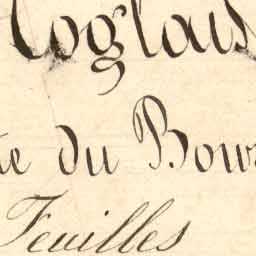 Coglais
te du Bour
Feuilles